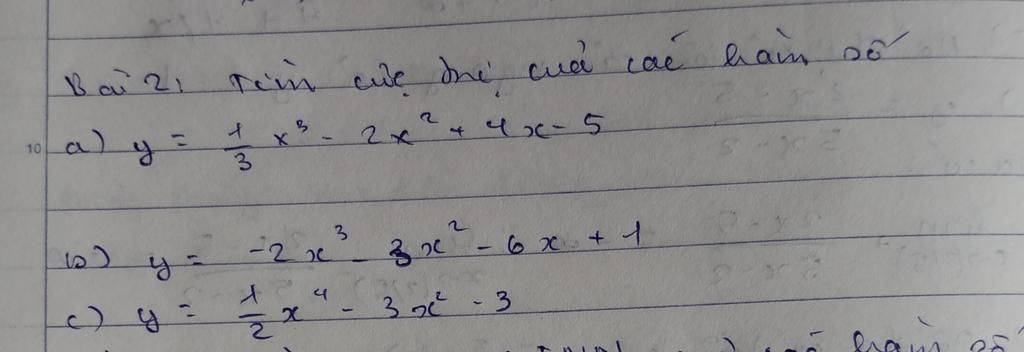 Bài 2, Tìm cực trị của các hàm số
10 a) y = 1/3 x³ - 2x² + 4x - 5
b) y = -2x³ - 3x² - 6x + 1
c) y = 1/2 x⁴ - 3x² - 3
hàm số